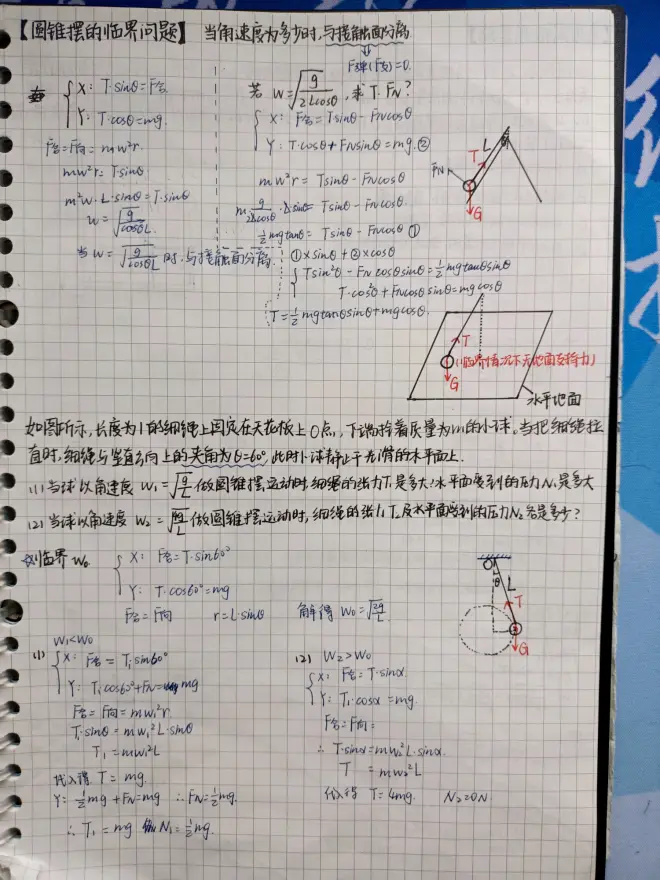 【圆锥摆的临界问题】 当角速度为多少时,与接触面分离
F弹(F支)=0.
X: T·sinθ=F合
Y: T·cosθ=mg.
F合=F向=mw²r.
mw²r=Tsinθ
m²w·L·sinθ=T·sinθ
w=√(g/cosθL)
当 w=√(g/cosθL) 时,与接触面分离.
若 w=√(g/2Lcosθ), 求 T、FN?
X: F合=Tsinθ-FNcosθ
Y: T·cosθ+FNsinθ=mg.②
mw²r=Tsinθ-FNcosθ
m·g/2Lcosθ·Lsinθ=Tsinθ-FNcosθ.
½mgtanθ=Tsinθ-FNcosθ ①
①×sinθ+②×cosθ
Tsin²θ-FNcosθsinθ=½mgtanθsinθ
T·cos²θ+FNcosθsinθ=mgcosθ
T=½mgtanθsinθ+mgcosθ.
FN
T
L
θ
G
T
(临界情况下无地面支持力)
G
水平地面
如图所示,长度为l的细绳上固定在天花板上O点,下端拴着质量为m的小球.当把细绳拉
直时,细绳与竖直方向上的夹角为θ=60°,此时小球静止于光滑的水平面上.
(1)当球以角速度 W₁=√(g/L) 做圆锥摆运动时,细绳的张力T₁是多大?水平面受到的压力N₁是多大
(2)当球以角速度 W₂=√(4g/L) 做圆锥摆运动时,细绳的张力T₂及水平面受到的压力N₂各是多少?
临界 W₀
X: F合=T·sin60°
Y: T·cos60°=mg
F合=F向 r=L·sinθ 解得 W₀=√(2g/L)
O
θ
L
T
G
W₁<W₀
(1) X: F合=T₁sin60°
Y: T₁cos60°+FN=mg
F合=F向=mw₁²r
T₁sinθ=mw₁²L·sinθ
T₁=mw₁²L
代入得 T=mg.
Y: ½mg+FN=mg ∴FN=½mg.
∴ T₁=mg N₁=½mg.
(2) W₂>W₀
X: F合=T·sinα.
Y: T₁·cosα=mg.
F合=F向=
∴ T·sinα=mw₂²L·sinα.
T=mw₂²L
代入得 T=4mg. N₂=0N